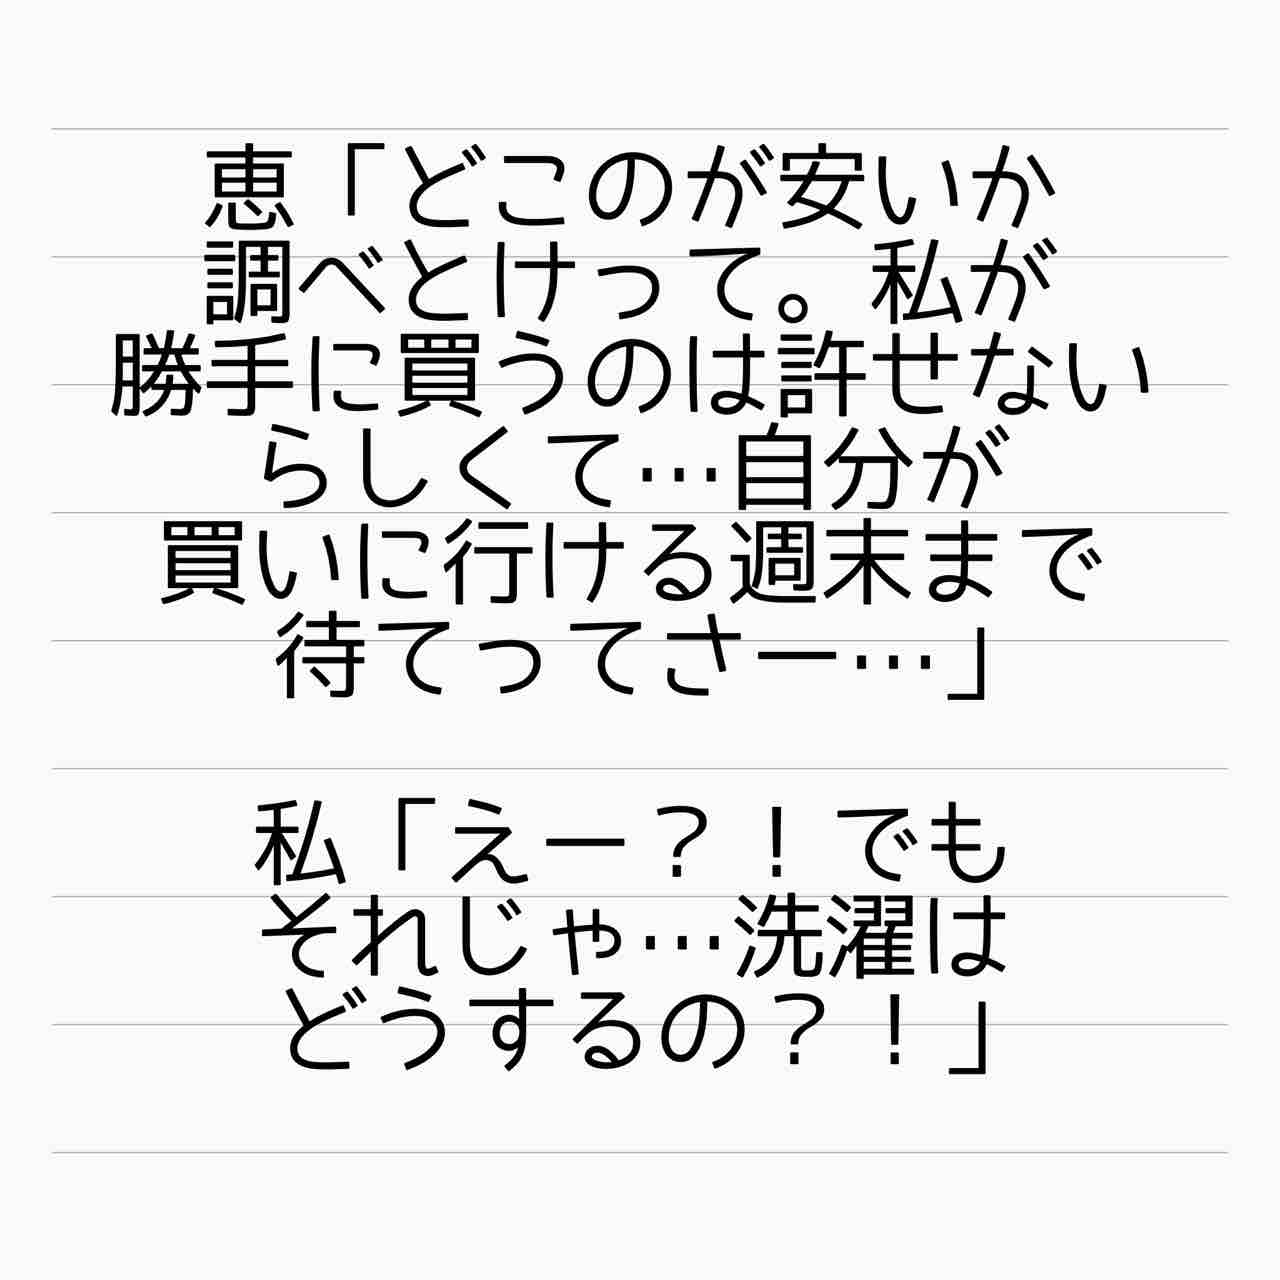 恵「どこのが安いか
調べとけって。私が
勝手に買うのは許せない
らしくて…自分が
買いに行ける週末まで
待てってさー…」
私「えー？！でも
それじゃ…洗濯は
どうするの？！」